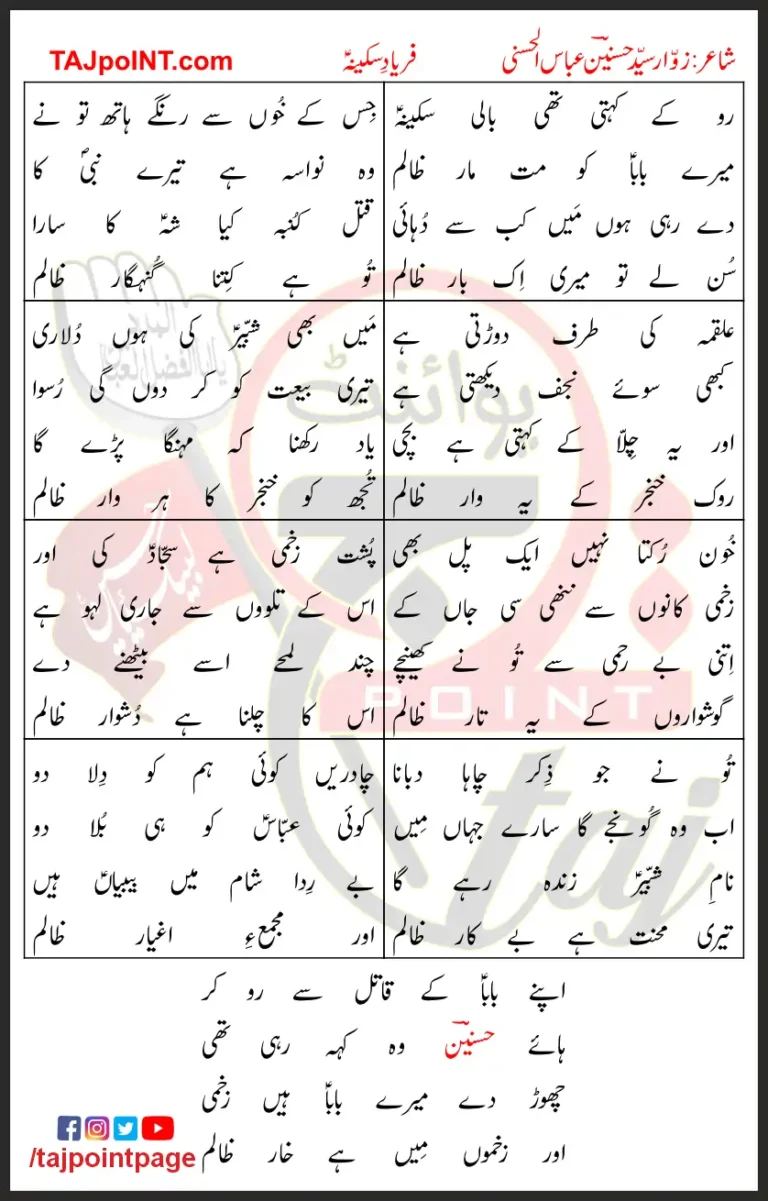 شاعر: زوّار سیّد حسنینؔ عباس الحسنی
فریادِ سکینہؑ
TAJpoINT.com
رو کے کہتی تھی بالی سکینہؑ
میرے باباؑ کو مت مار ظالم
دے رہی ہوں مَیں کب سے دُہائی
سُن لے تو میری اِک بار ظالم
جِس کے خُوں سے رنگے ہاتھ تو نے
وہ نواسہ ہے تیرے نبیؐ کا
قتل کُنبہ کیا شہؑ کا سارا
تُو ہے کِتنا گُنہگار ظالم
علقمہ کی طرف دوڑتی ہے
کبھی سوئے نجف دیکھتی ہے
اور یہ چِلّا کے کہتی ہے بچی
روک خنجر کے یہ وار ظالم
مَیں بھی شبّیرؑ کی ہوں دُلاری
تیری بیعت کو کر دوں گی رُسوا
یاد رکھنا کہ مہنگا پڑے گا
تُجھ کو خنجر کا ہر وار ظالم
خُون رُکتا نہیں ایک پل بھی
زخمی کانوں سے ننھی سی جاں کے
اِتنی بے رحمی سے تُو نے کھینچے
گوشواروں کے یہ تار ظالم
پُشت زخمی ہے سجّادؑ کی اور
اس کے تلووں سے جاری لہو ہے
چند لمحے اسے بیٹھنے دے
اس کا چلنا ہے دُشوار ظالم
تُو نے جو ذِکر چاہا دبانا
اب وہ گُونجے گا سارے جہاں مِیں
نامِ شبّیرؑ زندہ رہے گا
تیری محنت ہے بے کار ظالم
چادریں کوئی ہم کو دِلا دو
کوئی عبّاسؑ کو ہی بُلا دو
بے رِدا شام میں بیبیاںؑ ہیں
اور مجمعِ اغیار ظالم
اپنے باباؑ کے قاتل سے رو کر
ہائے حسنینؔ وہ کہہ رہی تھی
چھوڑ دے میرے باباؑ ہیں زخمی
اور زخموں مِیں ہے خار ظالم
/tajpointpage
پوائنٹ
ج
POINT
taj
لبیک یا حسین